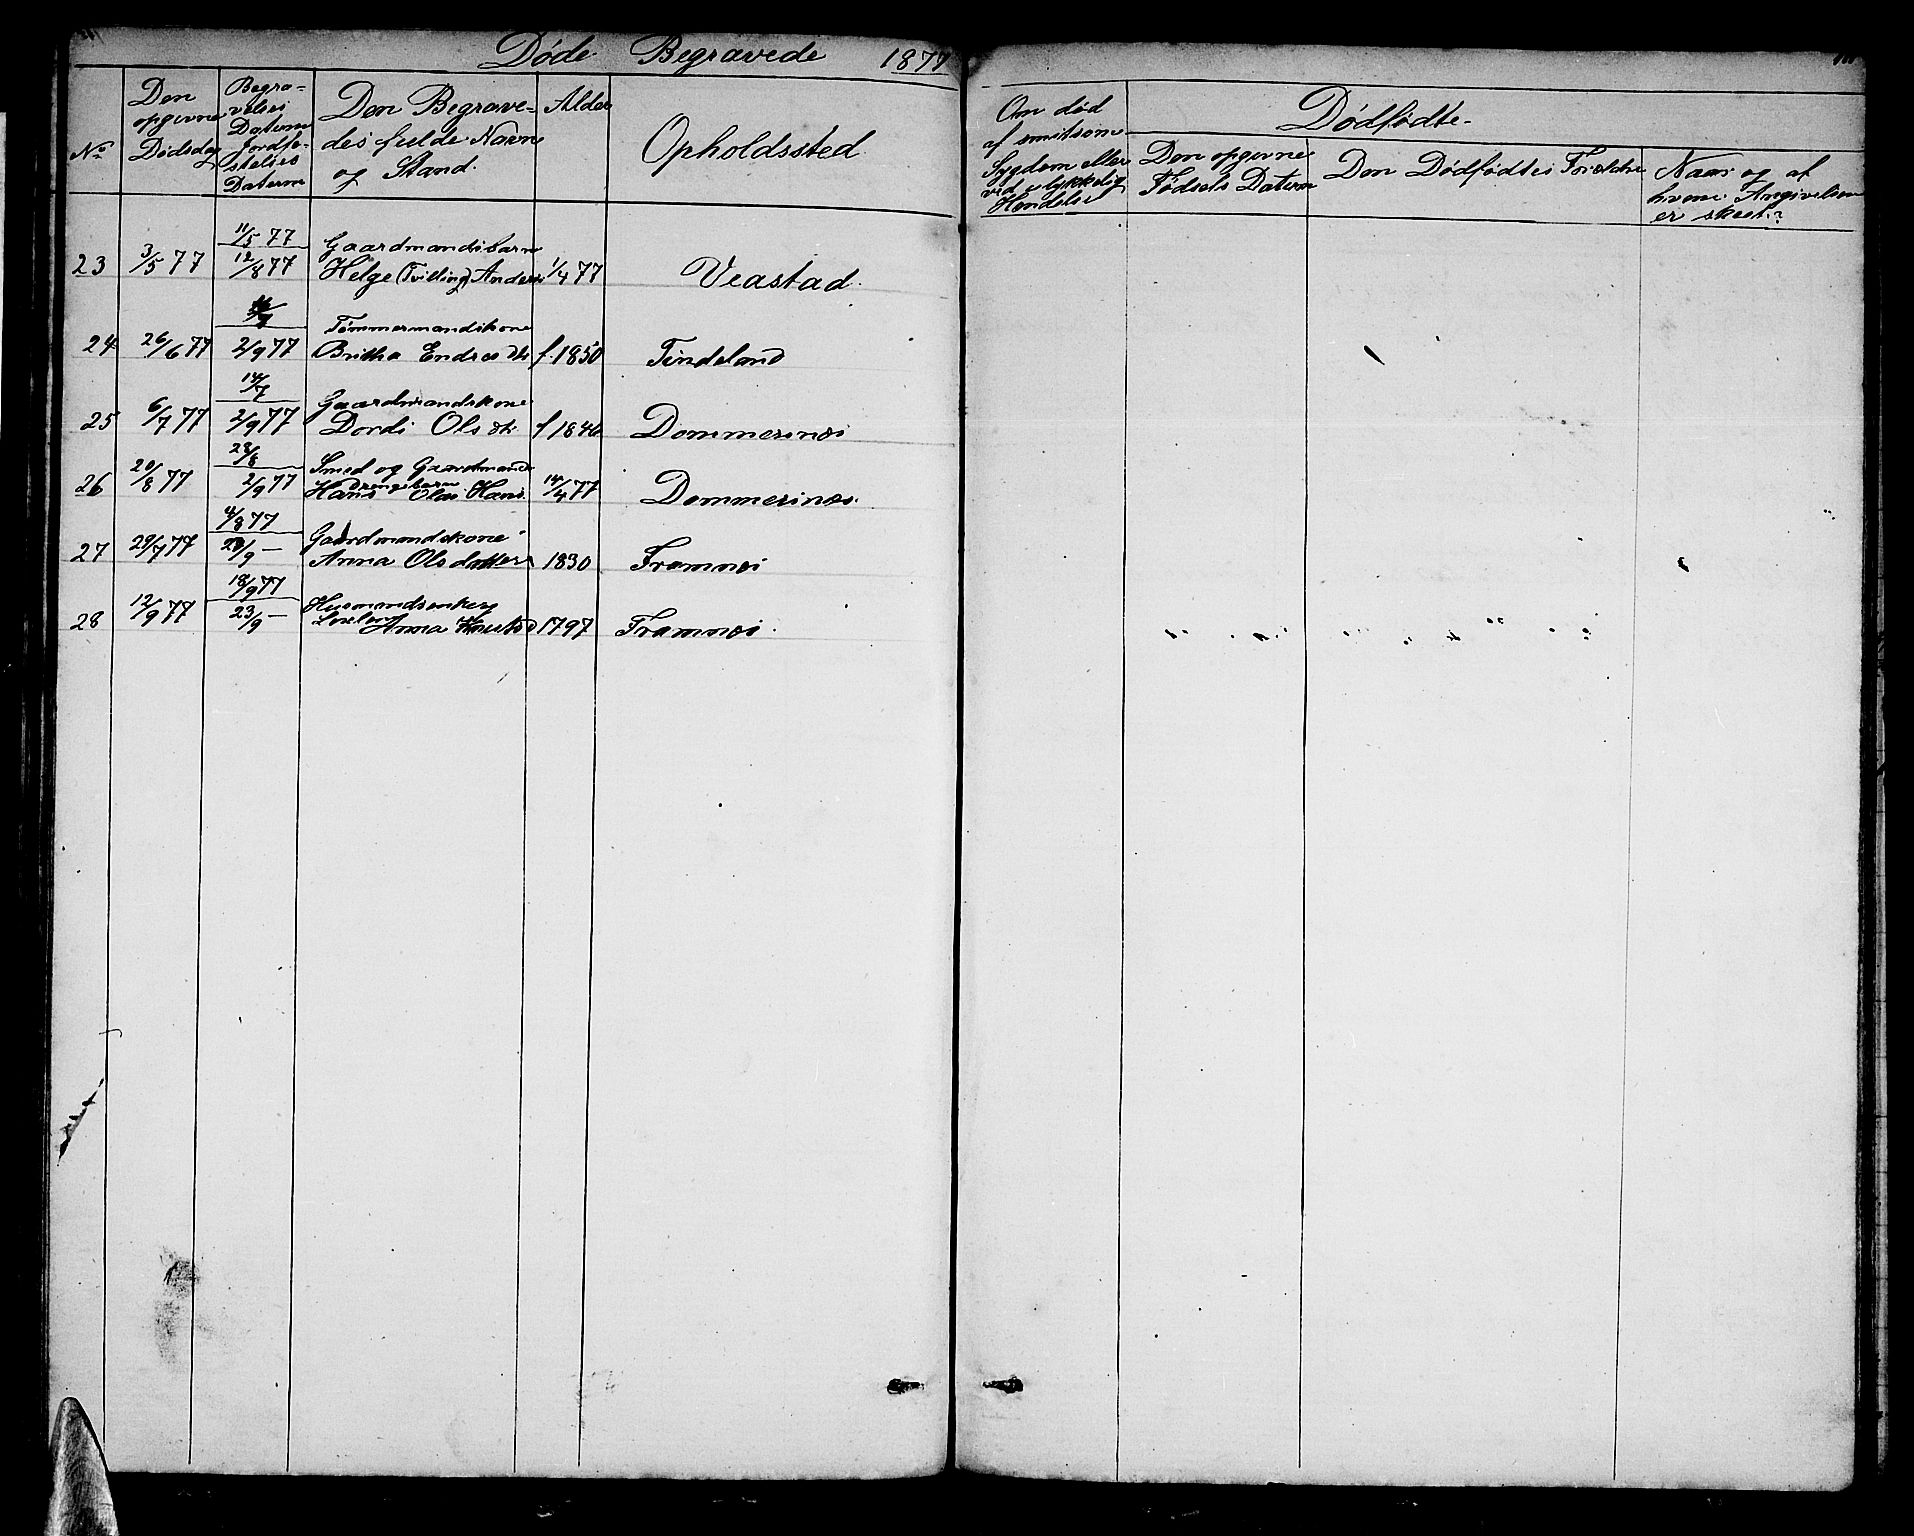 Døde Begravede 1877
No
Den opgivne Dødsdag
Begra-
velses
Datum
Jordfæ-
stelses
Datum
Den Begrave-
des fulde Navn
og Stand.
Alder
Opholdssted
Om død
af smitsom
Sygdom eller
ved ulykkelig
Hændelse
Dødfødte.
Den opgivne
Fødsels Datum
Den Dødfødtes Forældre
Naar og af
hvem Angivelsen
er skeet?
11/5 77
Gaardmandsbarn
23 3/5 77 12/8 77 Helge (Tvilling) Anders 1/4 77 Veastad.
Tømmermandskone
24 26/6 77 2/9 77 Britha Endresdtr f. 1850 Tindeland
14/7
Gaardmandskone
25 6/7 77 2/9 77 Dordi Olsdtr f 1840 Dommersnæs
23/8
Smed og Gaardmands
drengebarn
26 20/8 77 2/9 77 Hans Olai Hans. 14/4 77 Dommersnæs.
4/8 77
Gaardmandskone
27 29/7 77 23/9 — Anna Olsdatter 1830 Framnæs
18/9 77
Husmandsenke
28 12/9 77 23/9 — Anna 1797 Framnæs.